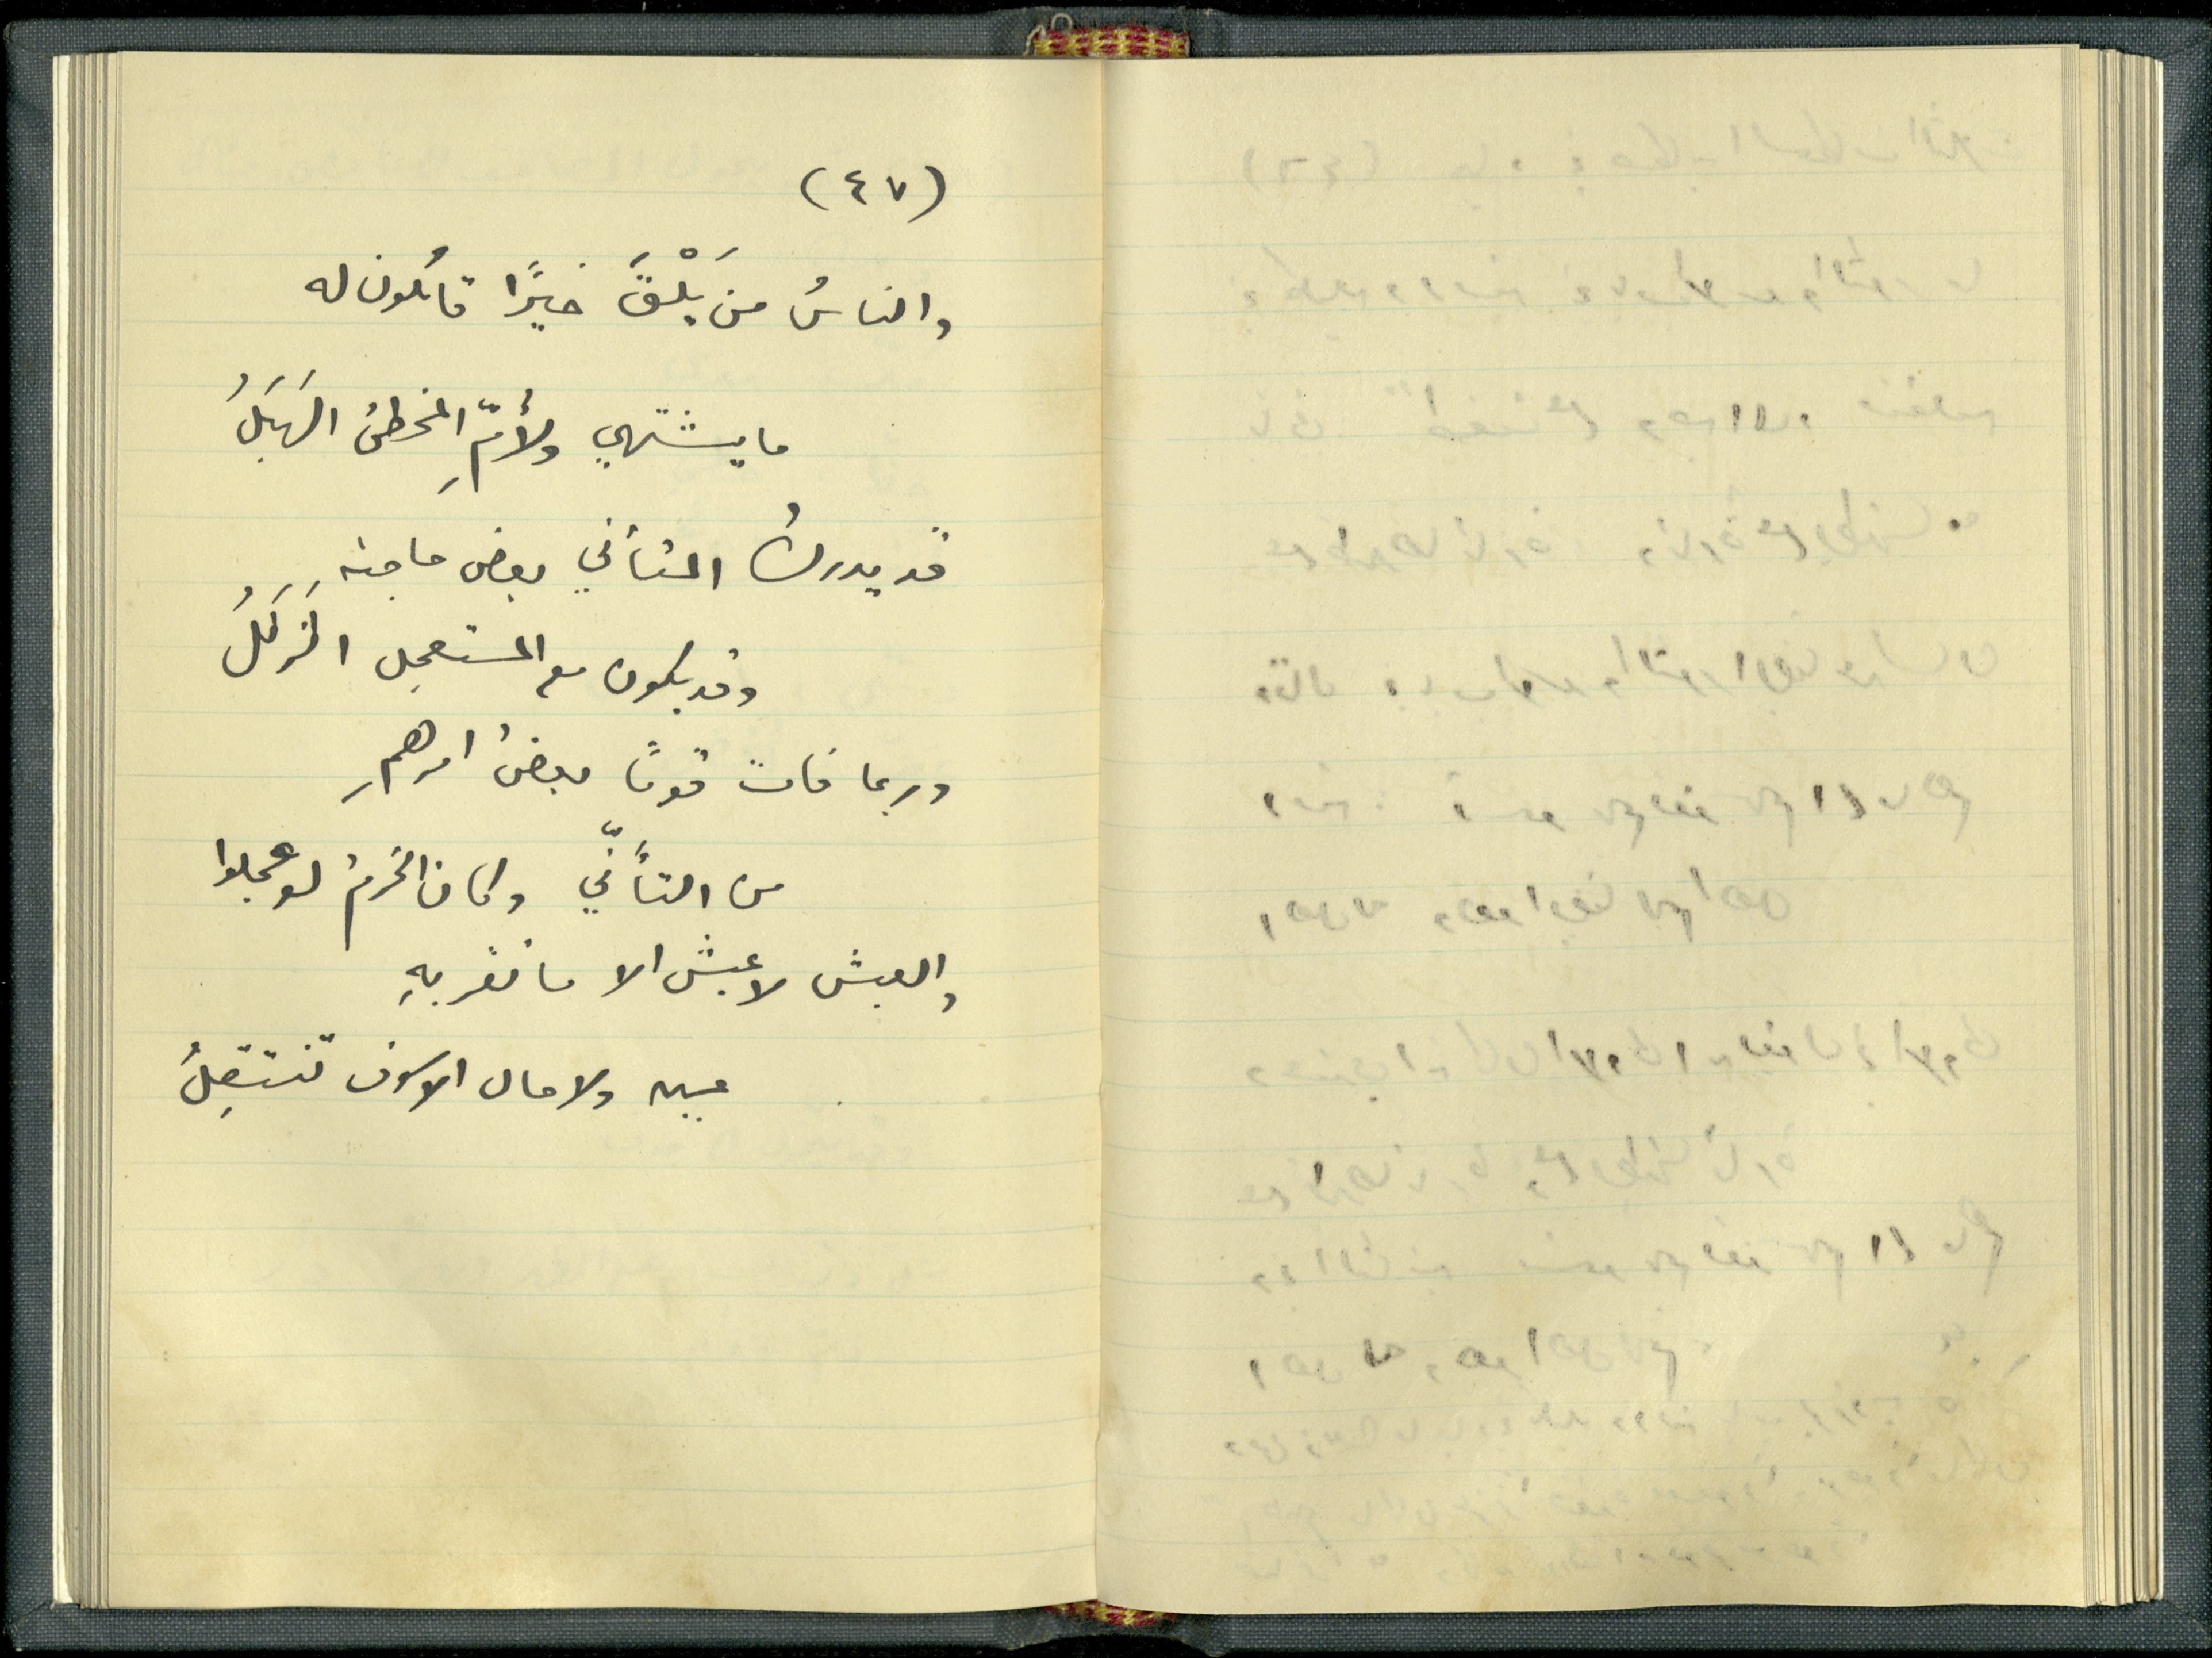 (٤٧)
والناسُ من يَلْقَ خيرًا قائلون له
ما يشتهي ولأمِّ المخطئ الهَبَلُ
قد يدركُ المتأني بعض حاجته
وقد يكون مع المستعجل الزَلَلُ
وربما فات قومًا بعضُ امرهمِ
من التأنّي وكان الحزمُ لو عجلوا
والعيش لا عيش الا ما تقر بهِ
عينه ولا حال الا سوف تنتقِلُ